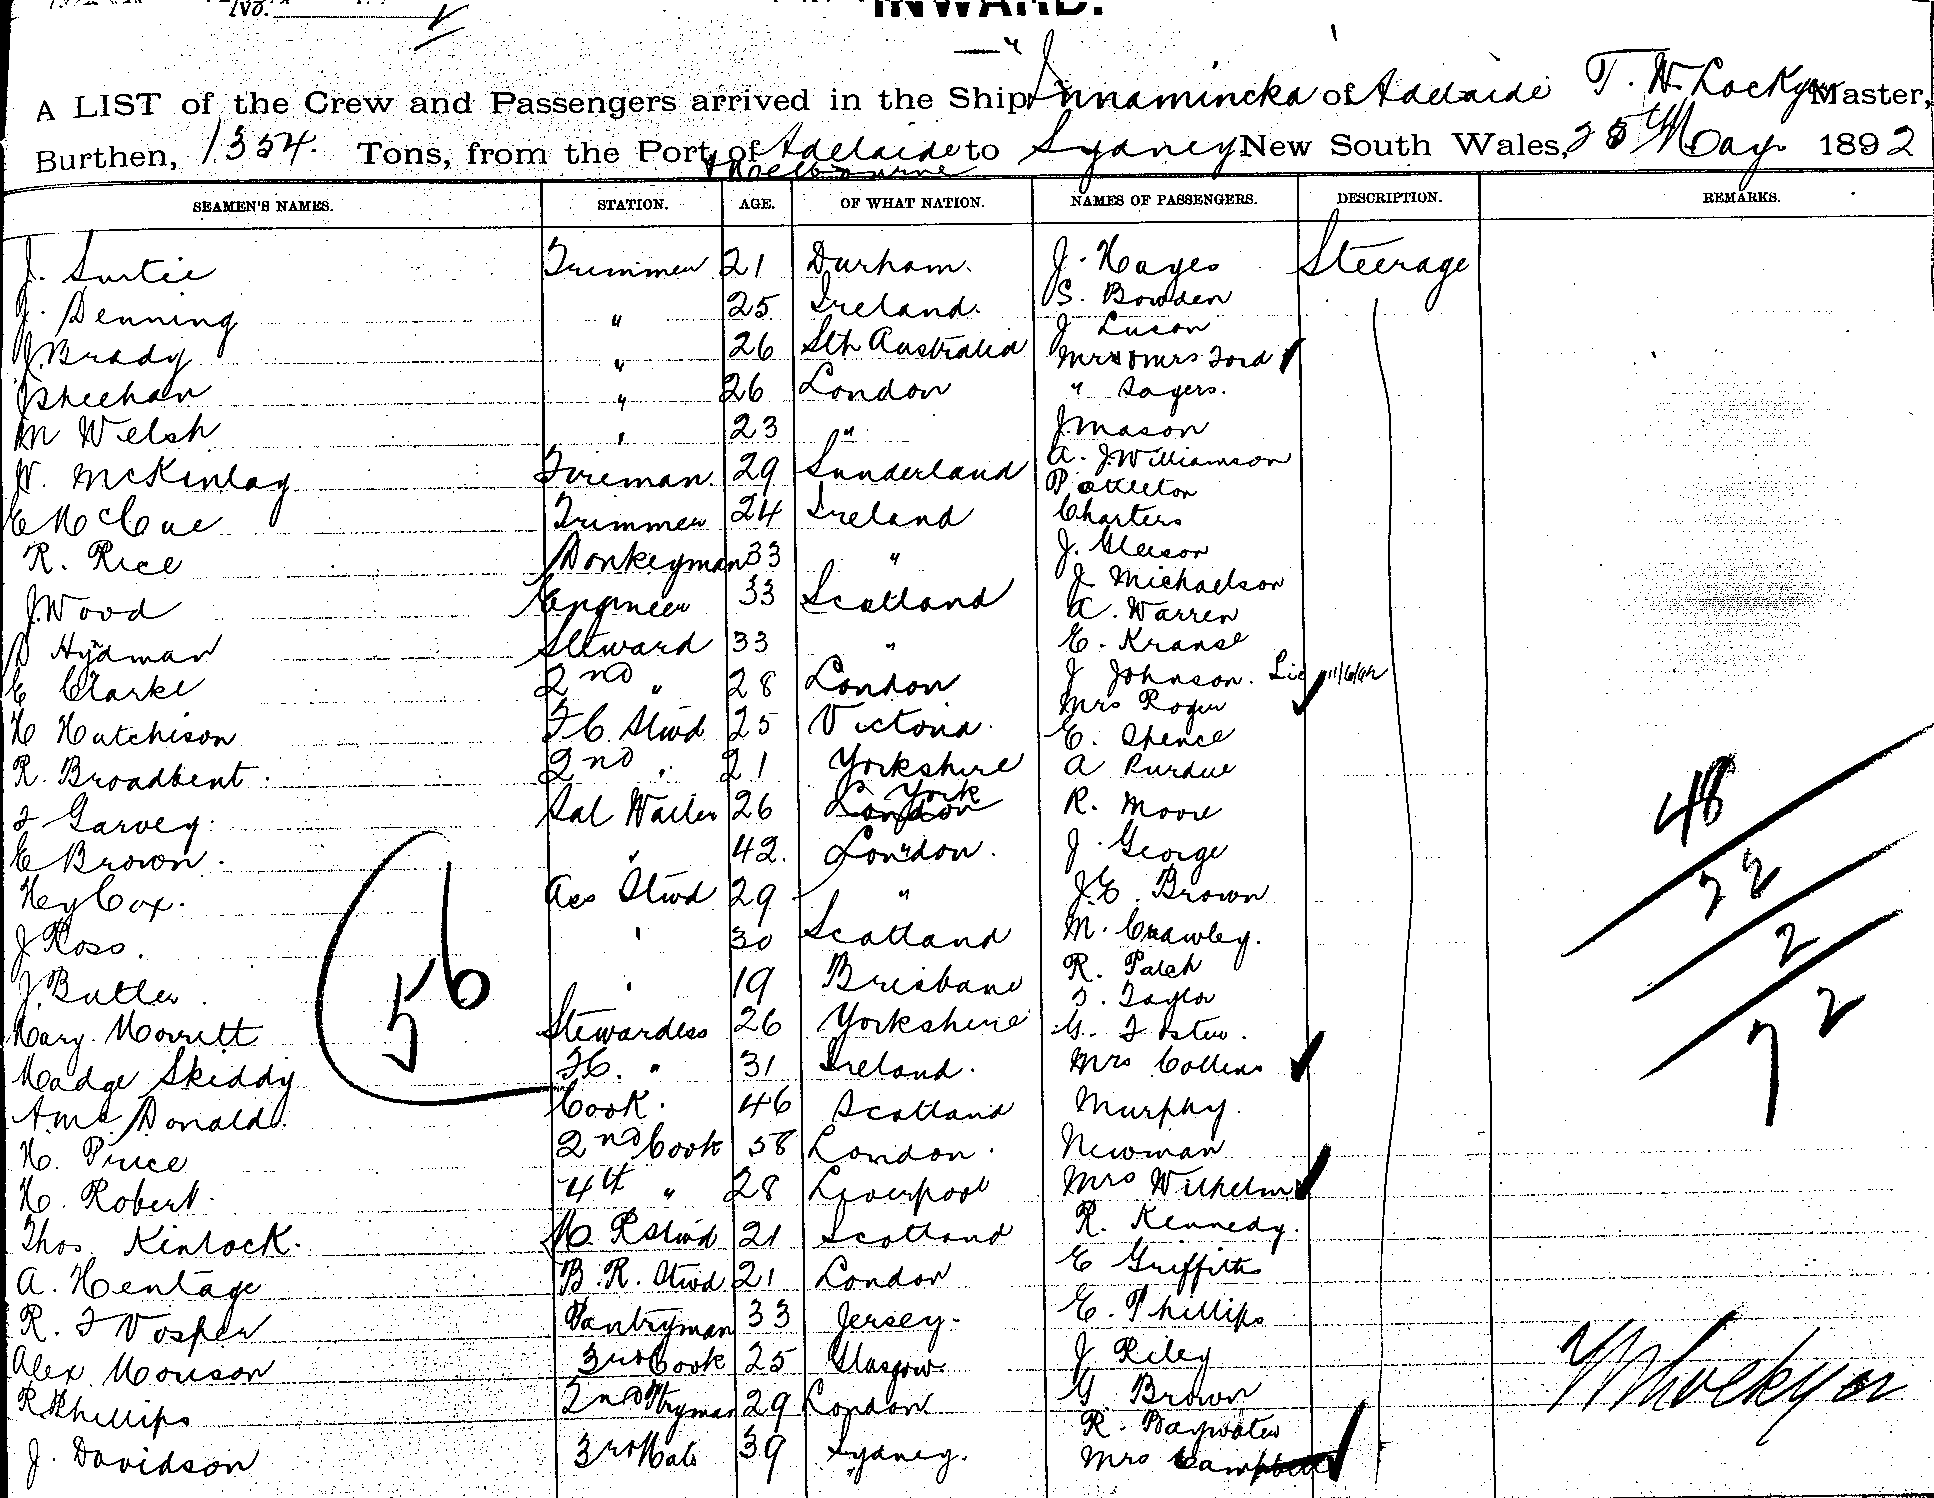 No.
INWARD.
A LIST of the Crew and Passengers arrived in the Ship Innamincka of Adelaide T. W. Lockyer Master,
Burthen, 1354. Tons, from the Port of Adelaide to Sydney New South Wales, 25th May 1892
& Melbourne
SEAMEN'S NAMES. STATION. AGE. OF WHAT NATION. NAMES OF PASSENGERS. DESCRIPTION. REMARKS.
J. Surtie Trimmer 21 Durham. J. Hayes Steerage
J. Denning " 25 Ireland. S. Bowden
J Brady " 26 Sth Australia J Luson
Mr & Mrs Ford
J Sheehan " 26 London " Sayers.
M Welsh " 23 " J Mason
W. McKinlay Fireman 29 Sunderland A. J. Williamson
P
E McCue Trimmer 24 Ireland Charters
R. Rice Donkeyman 33 " J. Gleeson
J Michaelson
J. Wood Engineer 33 Scotland A. Warren
Hydman Steward 33 " E. Kranse
E Clarke 2nd " 28 London J Johnson. Lie 11/6/92
Mrs Roger
H Hutchison F C Stwd 25 Victoria. E. Spence
R. Broadbent. 2nd " 21 Yorkshire A Purdue
F Garvey. Sal Waiter 26 London York R. Moore
48
E Brown. " 42. London. J. George
72
Hy Cox. Ass Stwd 29 " J. E. Brown
J Ross. " 30 Scotland M. Crawley.
2
56
J. Butler. " 19 Brisbane R. Patch
T. Taylor
72
Mary Morritt Stewardess 26 Yorkshire G. Foster.
Madge Skiddy F C. " 31 Ireland. Mrs Collins
A McDonald. Cook. 46 Scotland Murphy.
H. Price 2nd Cook 58 London. Newman
H. Robert. 4th " 28 Liverpool Mrs Wilhelm
Thos. Kinlock. M. R Stwd 21 Scotland R. Kennedy.
A. Hentage B. R. Stwd 21 London E Griffiths
R. F Vosper Pantryman 33 Jersey. E. Phillips
Alex Morison 3rd Cook 25 Glasgow. J Riley
R Phillips 2nd 29 London G. Brown
R. Baywater
J. Davidson 3rd Mate 39 Sydney. Mrs Campbell
T W Lockyer